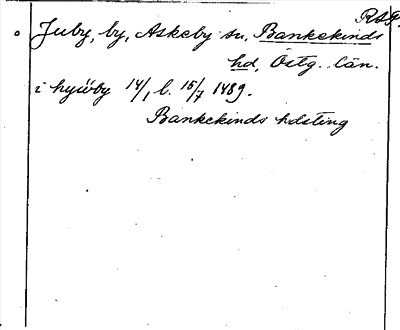 RAP.
Juby, by, Askeby sn, Bankekinds
hd, Östg. län.
i hywby 14/1 l. 15/7 1489.
Bankekinds hdsting